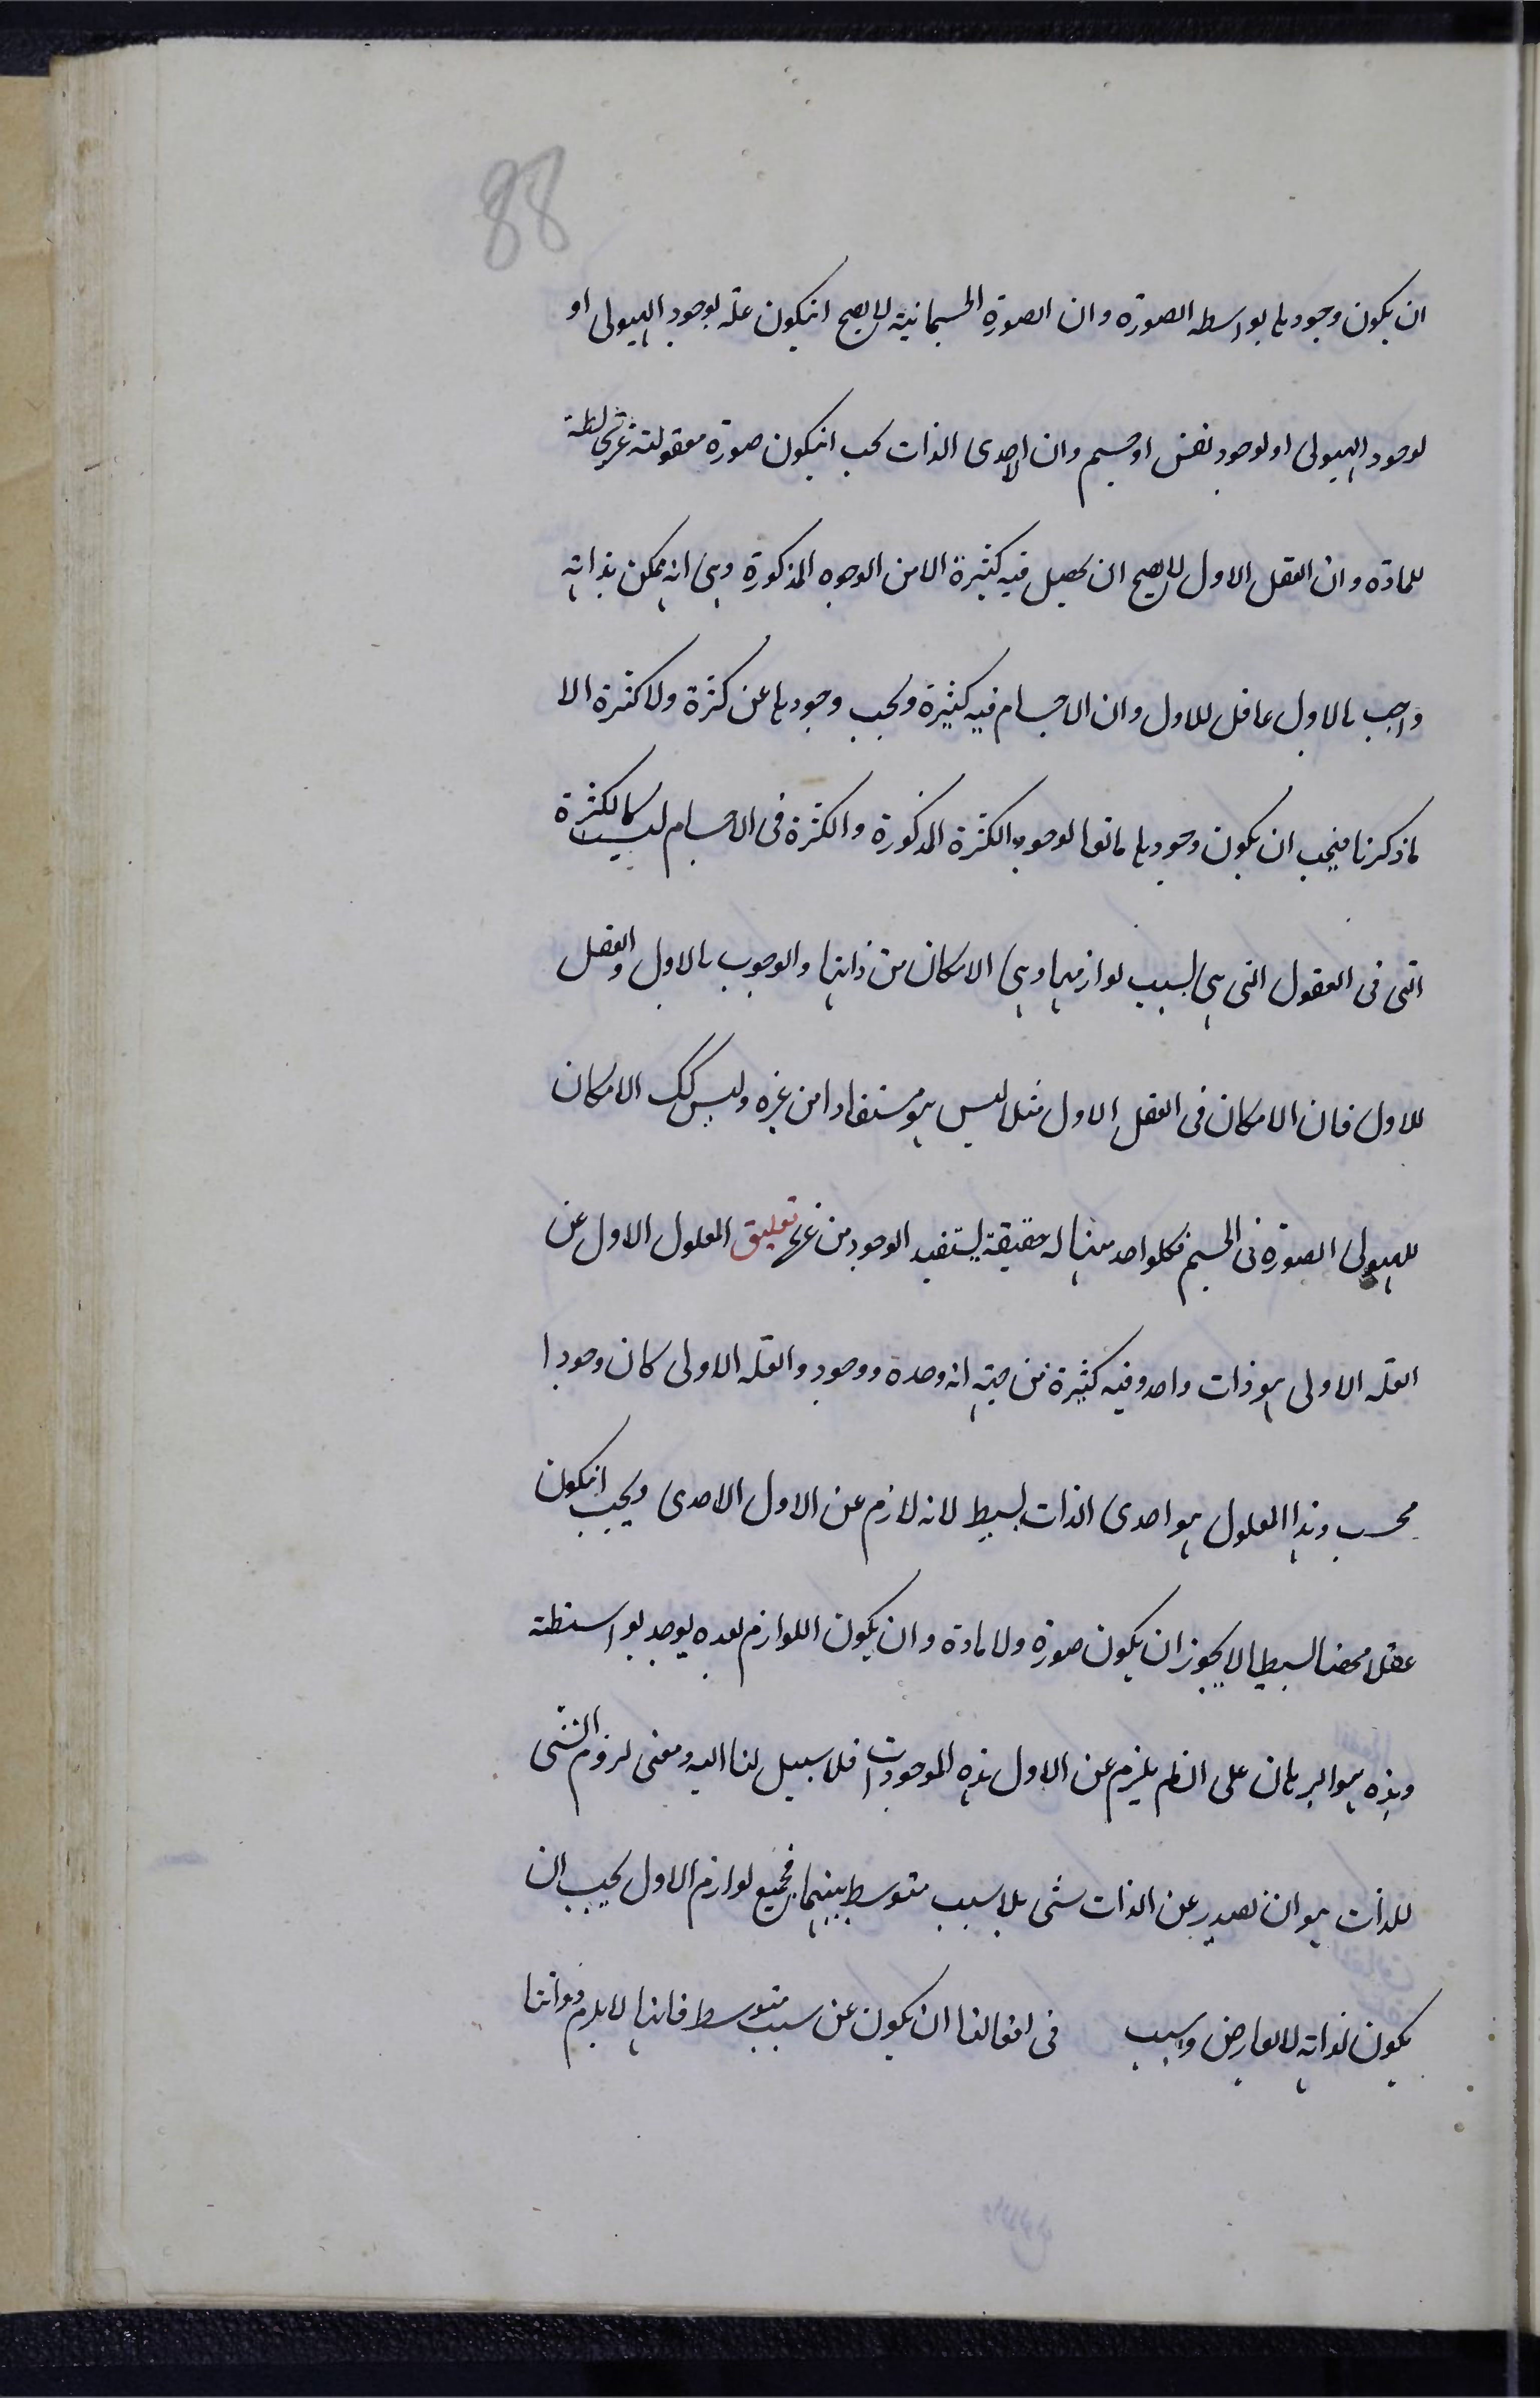 88
ان يكون وجودها بواسطه الصورة وان الصورة الجسمانية لا يصح انيكون علة لوجود الهيولى او
لوجود الهيولى او لوجود نفس او جسم وان الاحدى الذات يجب انيكون صورة معقولة غير مخالطة
للمادة وان العقل الاول لا يصح ان يحصل فيه كثيرة الا من الوجوه المذكورة وهى انه ممكن بذاته
واجب بالاول عاقل للاول وان الاجسام فيه كثيرة ويجب وجودها عن كثرة ولا كثرة الا
ما ذكرنا فيجب ان يكون وجودها مانعا لوجود الكثرة المذكورة والكثرة فى الاجسام ليست كالكثرة
التى فى العقول التى هى بسبب لوازمها وهى الامكان من ذاتها والوجوب بالاول والعقل
للاول فان الامكان فى العقل الاول مثلا ليس هو مستفادا من غيره وليس كك الامكان
للهيولى الصورة فى الجسم فكلواحد منها له حقيقة يستفيد الوجود من غيرها تعليق المعلول الاول عن
العلة الاولى هو ذات واحد وفيه كثيرة من حيث انه وحدة ووجود والعلة الاولى كان وجودا
فحسب وهذا المعلول هو احدى الذات بسيط لانه لازم عن الاول الاحدى ويجب انيكون
عقلا محضا بسيطا لا يجوز ان يكون صورة ولا مادة وان يكون اللوازم بعده يوجد بواسطته
وهذه هو البرهان على ان لم يلزم عن الاول هذه الموجودات فلا سبيل لنا اليه ومعنى لزوم الشى
للذات هو ان يصدر عن الذات شى بلا سبب متوسط بينهما فجميع لوازم الاول يجب ان
يكون لذاته لا لعارض وسبب فى افعالنا ان يكون عن سبب متوسط فانها لا يلزم ذواتنا